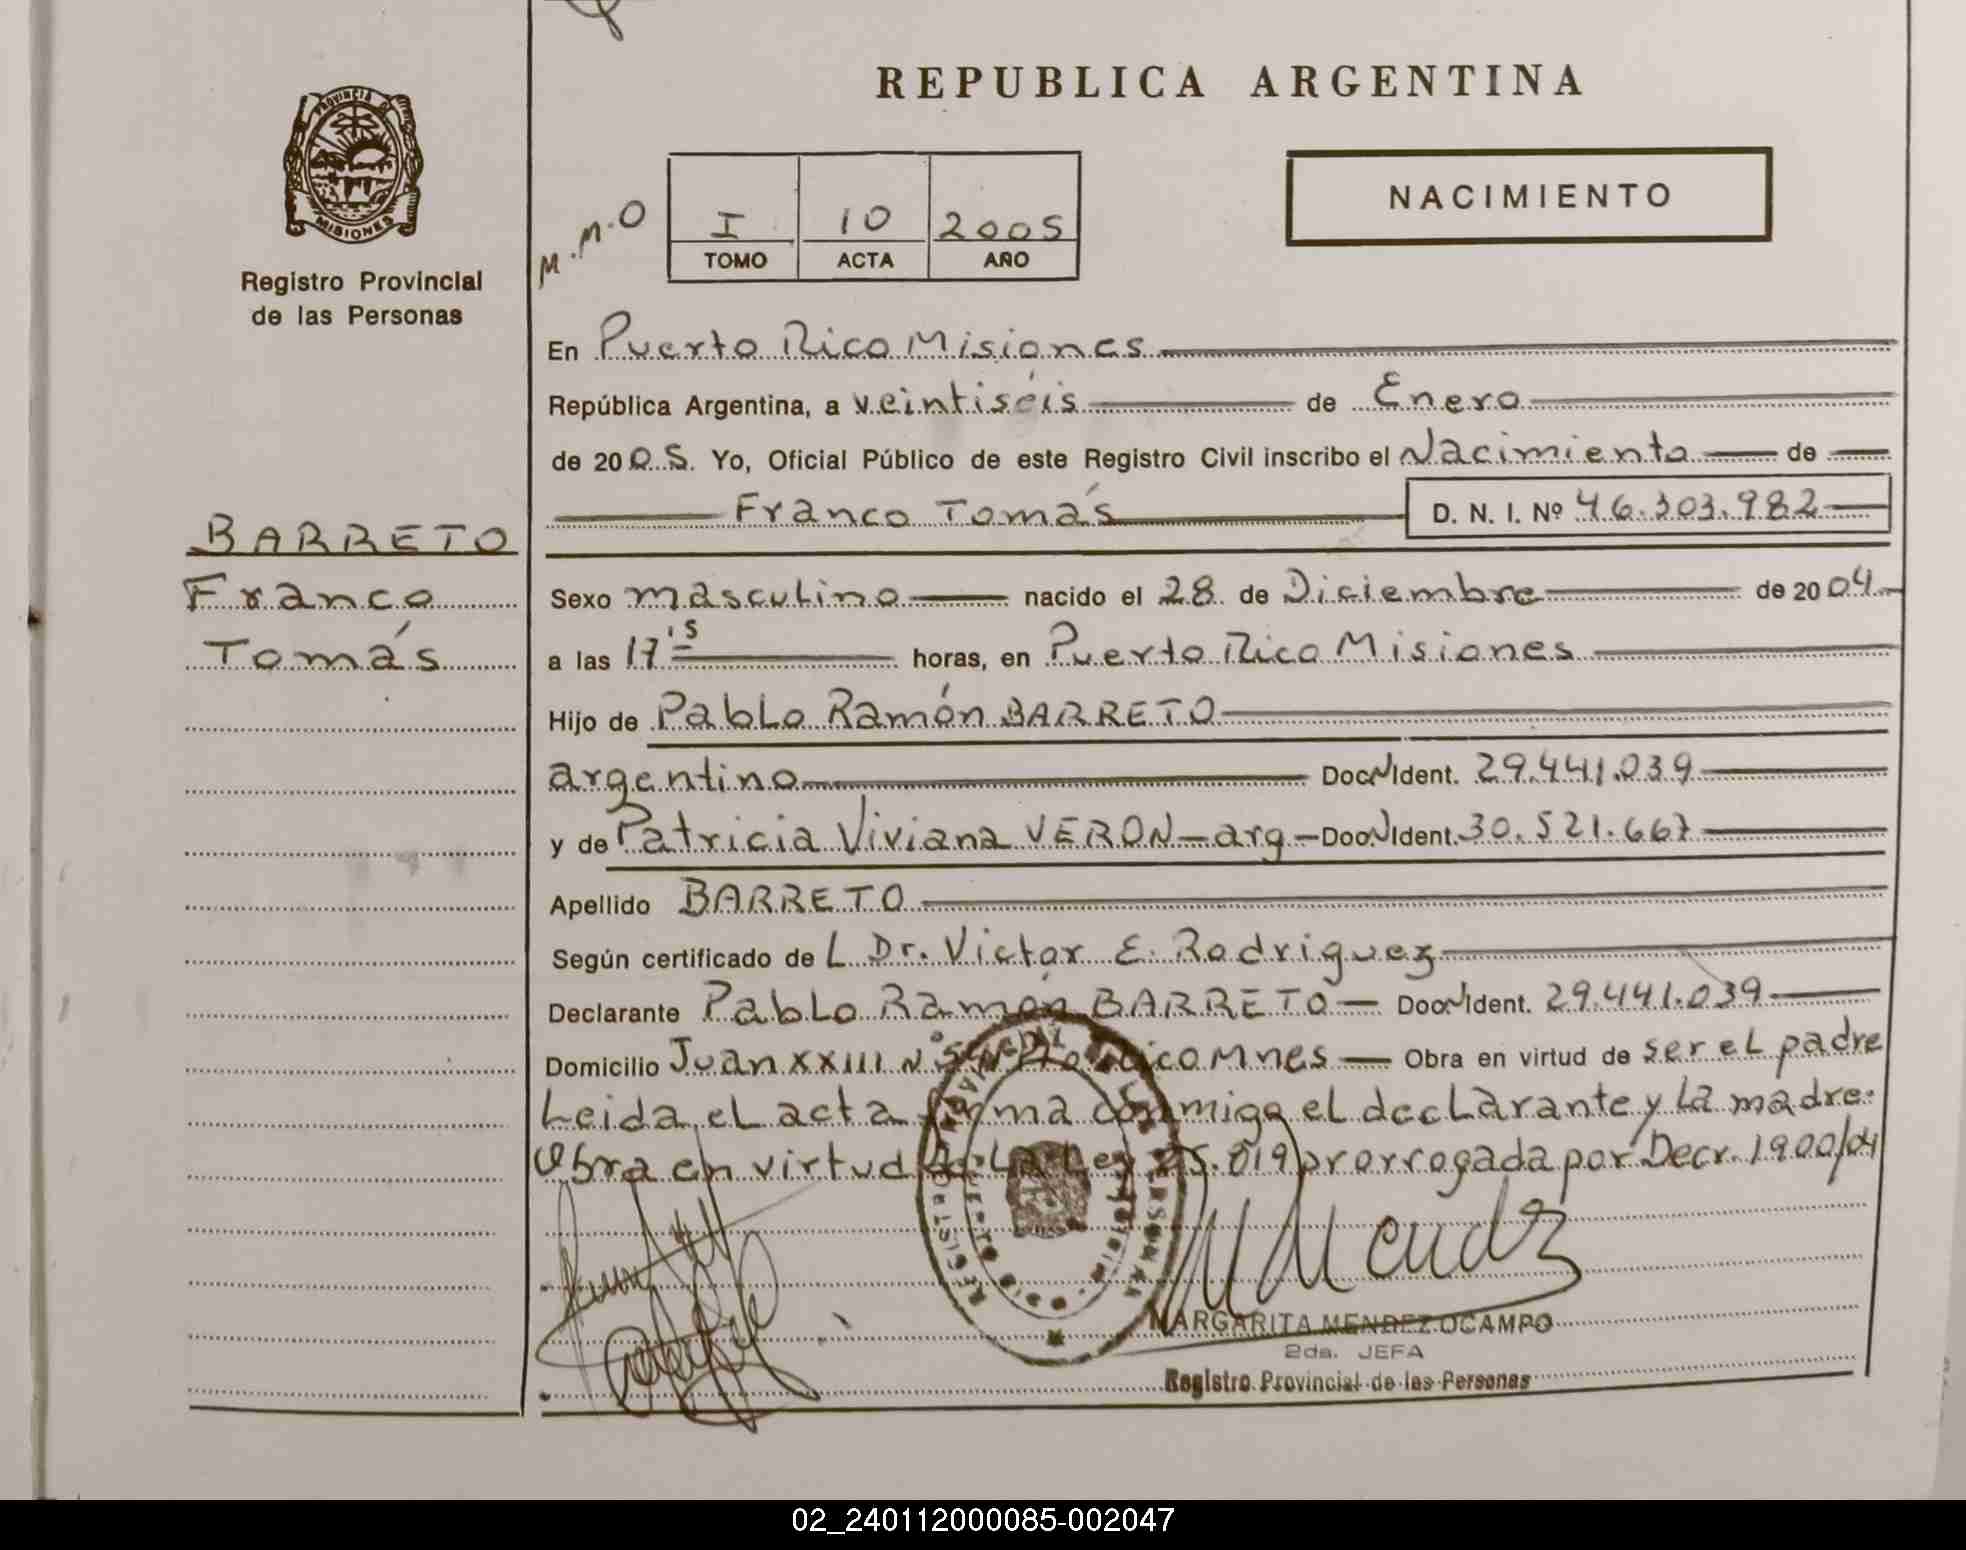 REPUBLICA ARGENTINA
PROVINCIA DE MISIONES
Registro Provincial
de las Personas
M.M.O
I 10 2005
TOMO ACTA AÑO
NACIMIENTO
En Puerto Rico Misiones
República Argentina, a veintiséis de Enero
de 2005. Yo, Oficial Público de este Registro Civil inscribo el Nacimiento de
Franco Tomás D. N. I. Nº 46.303.982
BARRETO
Franco
Tomás
Sexo masculino nacido el 28 de Diciembre de 2004
a las 17'5 horas, en Puerto Rico Misiones
Hijo de Pablo Ramón BARRETO
argentino Doc N Ident. 29.441.039
y de Patricia Viviana VERON-arg- Doc N Ident. 30.521.667
Apellido BARRETO
Según certificado de L Dr. Victor E. Rodriguez
Declarante Pablo Ramón BARRETO Doc N Ident. 29.441.039
Domicilio Juan XXIII N S/N Pto Rico Mnes Obra en virtud de ser el padre
Leida el acta firma conmigo el declarante y la madre.
Obra en virtud de la Ley 25.819 prorrogada por Decr. 1900/04
MMendz
MARGARITA MENDEZ OCAMPO
2da. JEFA
Registro Provincial de las Personas
02_240112000085-002047